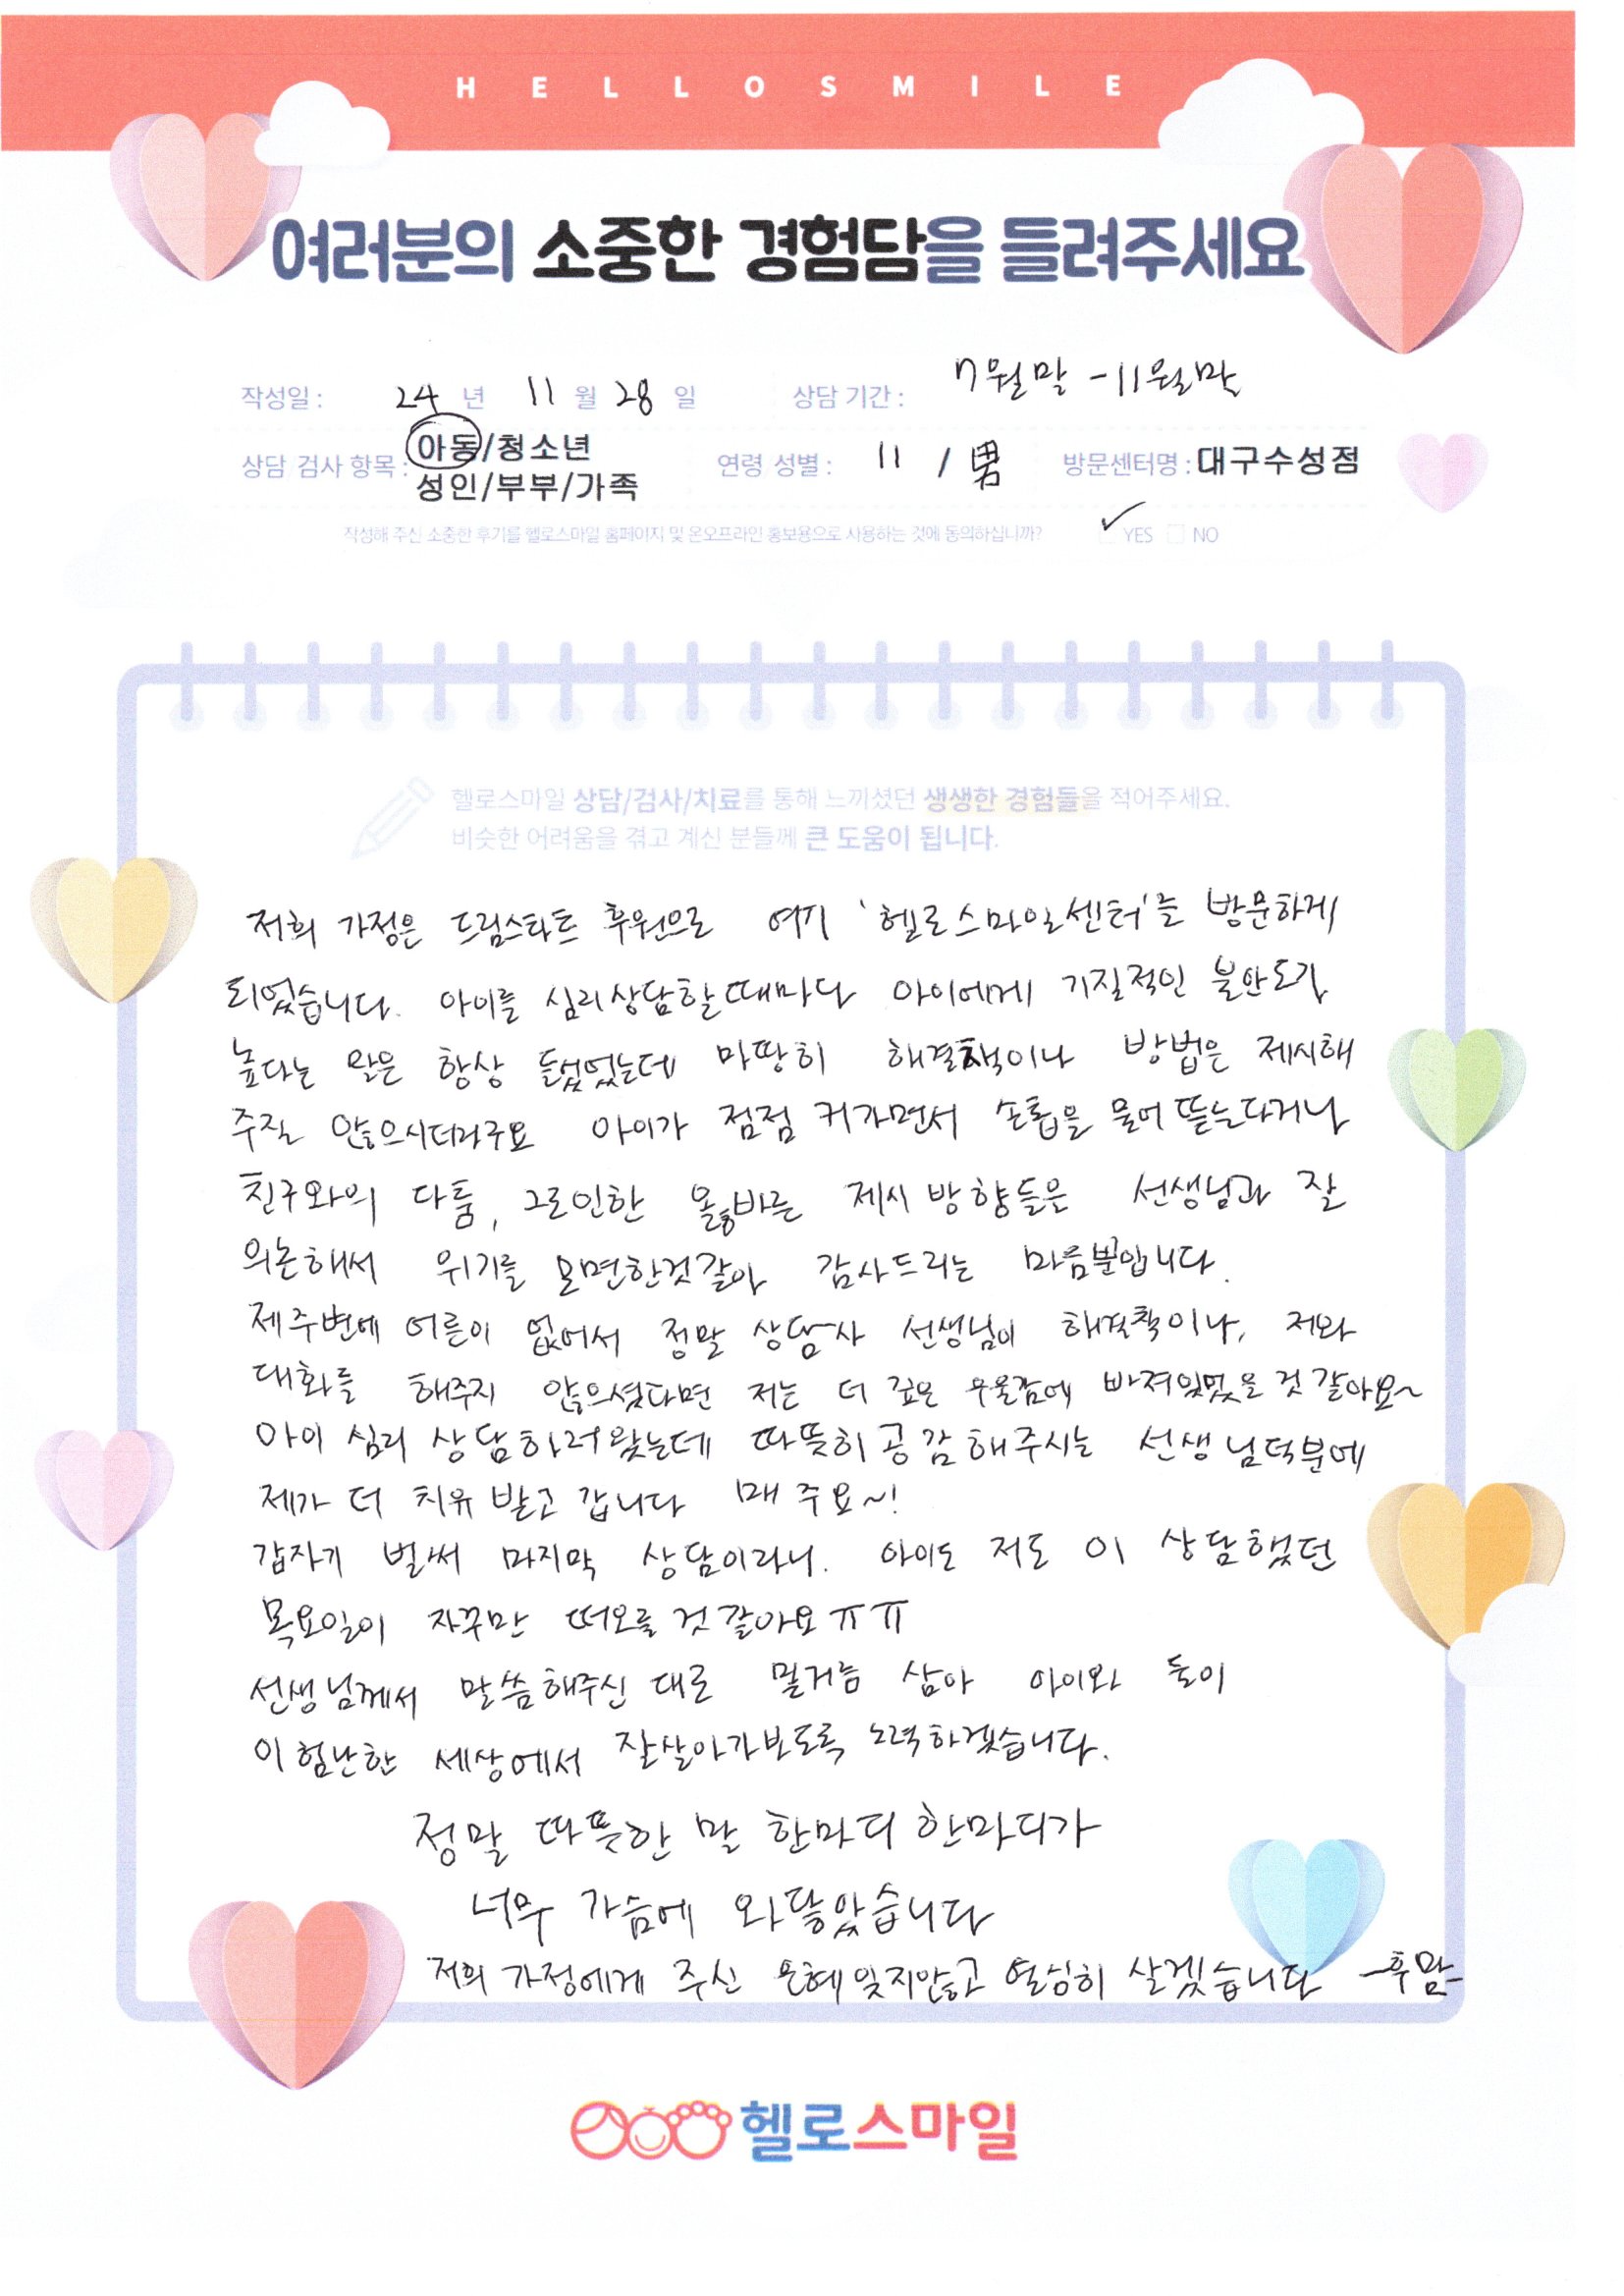 HELLOSMILE
여러분의 소중한 경험담을 들려주세요
작성일 : 24 년 11 월 28 일 상담 기간 : 7월말 - 11월말
상담 검사 항목 : 아동/청소년
성인/부부/가족
연령 성별 : 11 / 男 방문센터명 : 대구수성점
작성해 주신 소중한 후기를 헬로스마일 홈페이지 및 온오프라인 홍보용으로 사용하는 것에 동의하십니까? YES NO
헬로스마일 상담/검사/치료를 통해 느끼셨던 생생한 경험들을 적어주세요.
비슷한 어려움을 겪고 계신 분들께 큰 도움이 됩니다.
저희 가정은 드림스타트 후원으로 여기 '헬로스마일센터'를 방문하게
되었습니다. 아이를 심리상담할때마다 아이에게 기질적인 불안도가
높다는 말은 항상 들었었는데 마땅히 해결책이나 방법은 제시해
주질 않으시더라구요 아이가 점점 커가면서 손톱을 물어뜯는다거나
친구와의 다툼, 그로인한 올바른 제시 방향들은 선생님과 잘
의논해서 위기를 모면한것같아 감사드리는 마음뿐입니다.
제주변에 어른이 없어서 정말 상담사 선생님이 해결책이나, 저와
대화를 해주지 않으셨다면 저는 더 깊은 우울감에 빠져있었을 것 같아요~
아이 심리 상담하러왔는데 따뜻히 공감해주시는 선생님덕분에
제가 더 치유 받고 갑니다 매 주요~!
갑자기 벌써 마지막 상담이라니. 아이도 저도 이 상담했던
목요일이 자꾸만 떠오를 것 같아요 ㅠㅠ
선생님께서 말씀해주신 대로 밑거름 삼아 아이와 둘이
이 험난한 세상에서 잘살아가보도록 노력하겠습니다.
정말 따뜻한 말 한마디 한마디가
너무 가슴에 와닿았습니다
저희 가정에게 주신 은혜 잊지않고 열심히 살겠습니다 -후맘-
헬로스마일